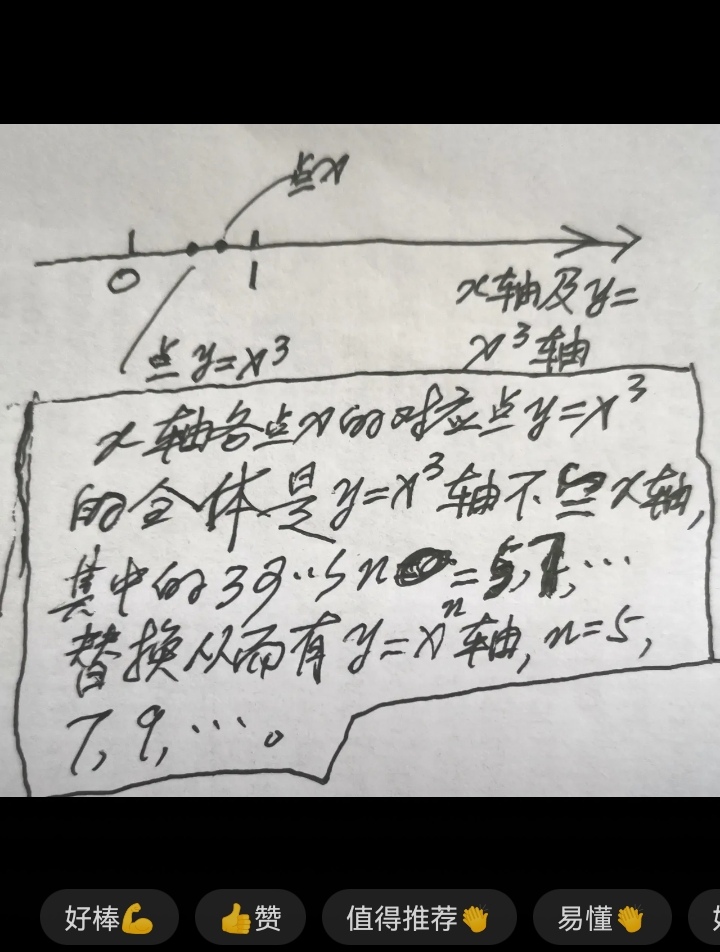 点x
0
1
x轴及y=
x³轴
点y=x³
x轴各点x的对应点y=x³
的全体是y=x³轴不是x轴,
其中的3可…n=5,7,…
替换从而有y=xⁿ轴,n=5,
7,9,…。
好棒💪 👍赞 值得推荐👏 易懂👏